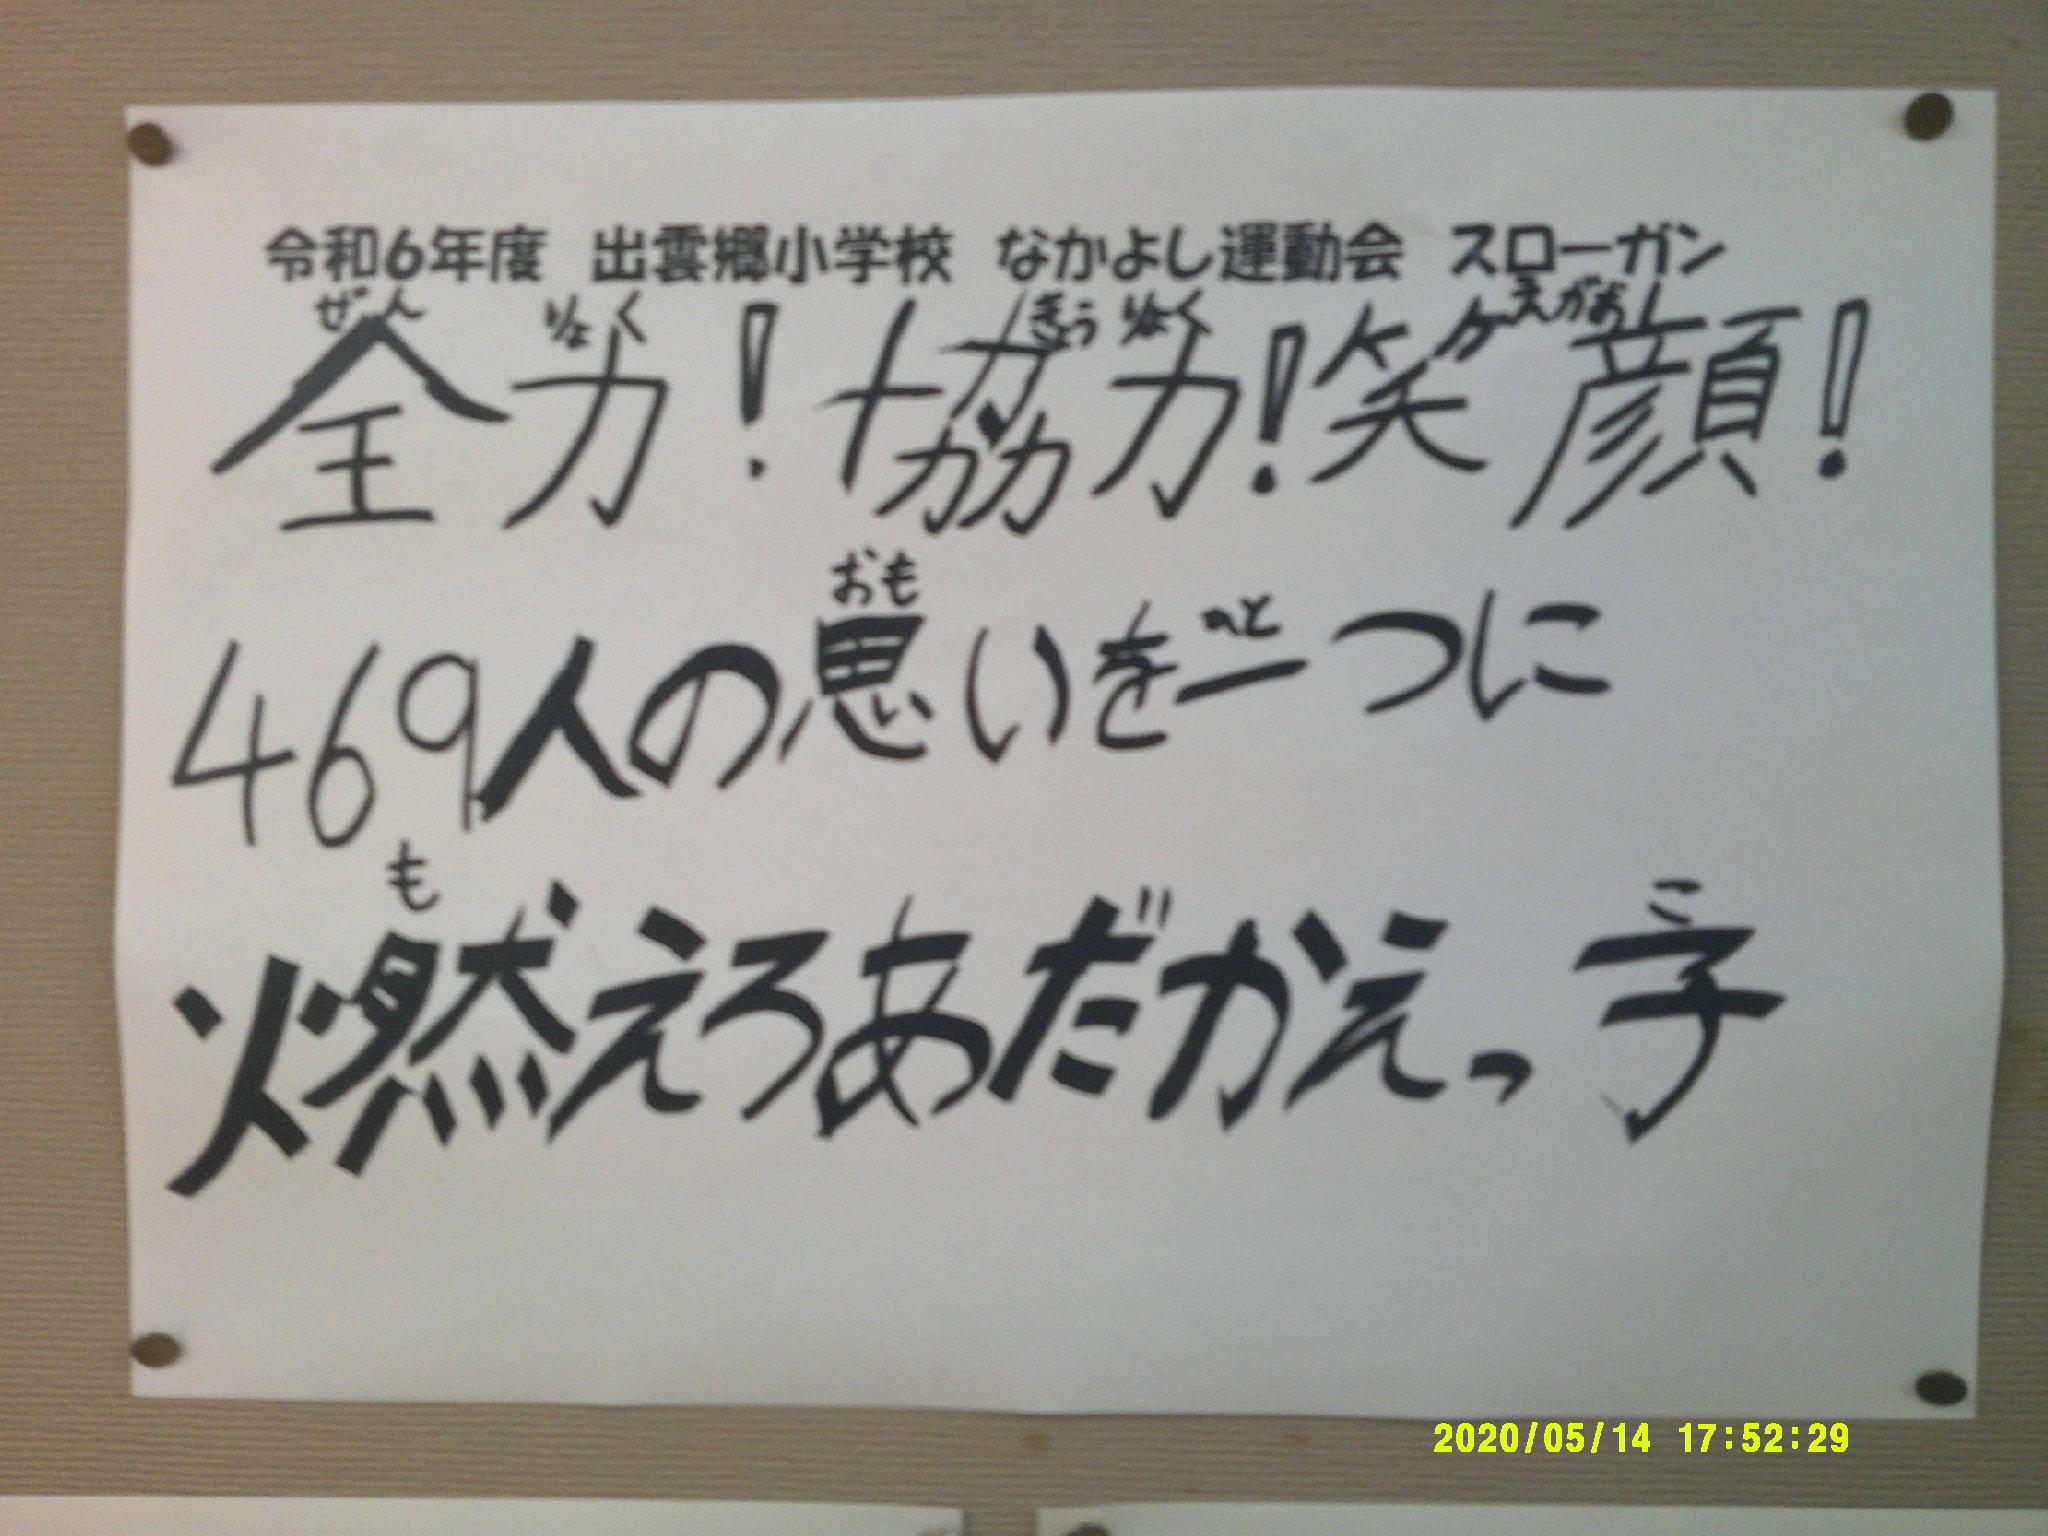 令和6年度 出雲郷小学校 なかよし運動会 スローガン
ぜん りょく きょう りょく えがお
全力!協力!笑顔!
おも ひと
469人の思いを一つに
も こ
燃えろあだかえっ子
2020/05/14 17:52:29